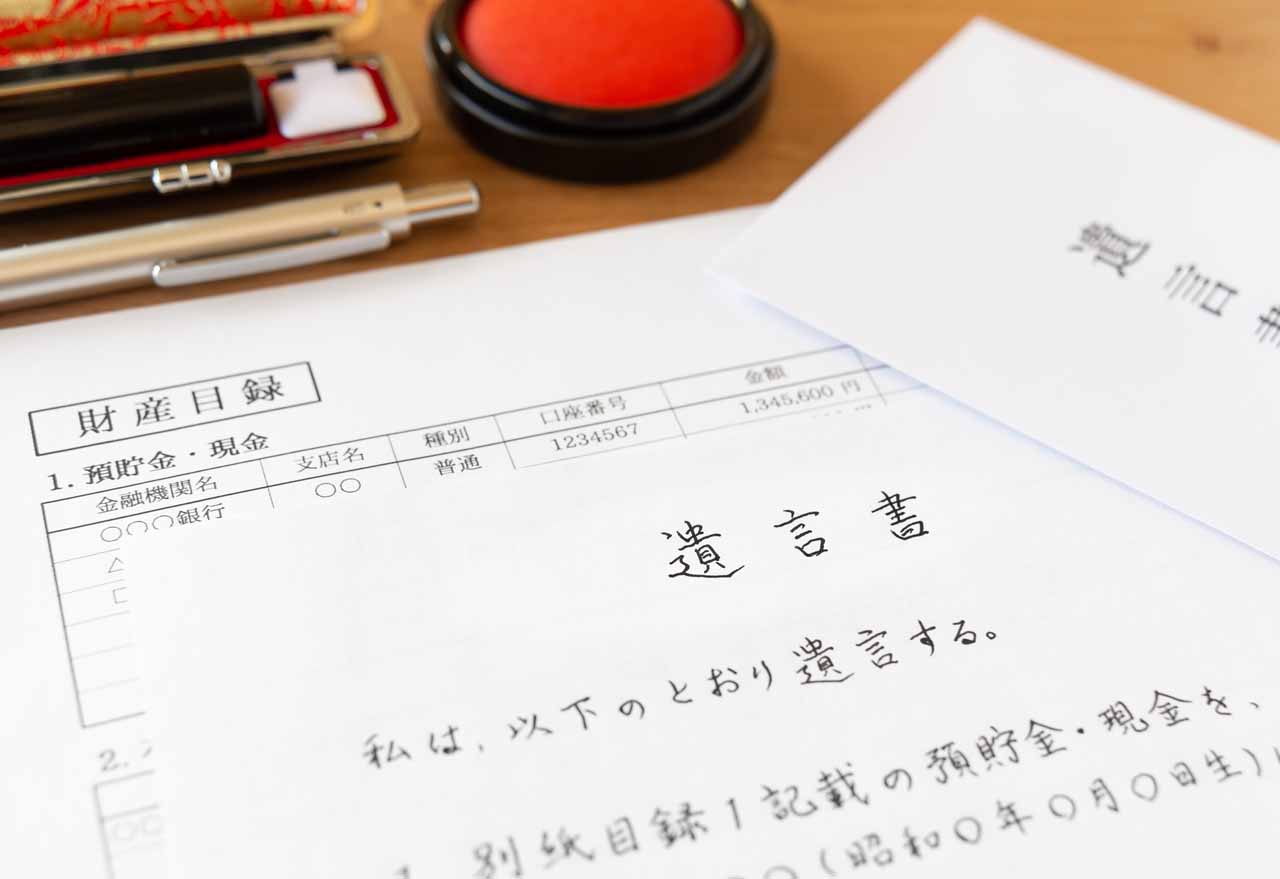 遺言
財産目録
1. 預貯金・現金
金融機関名 支店名 種別 口座番号 金額
○○○銀行 ○○ 普通 1234567 1,345,600 円
2.
遺言書
私は、以下のとおり遺言する。
別紙目録1記載の預貯金・現金を、
(昭和○年○月○日生)